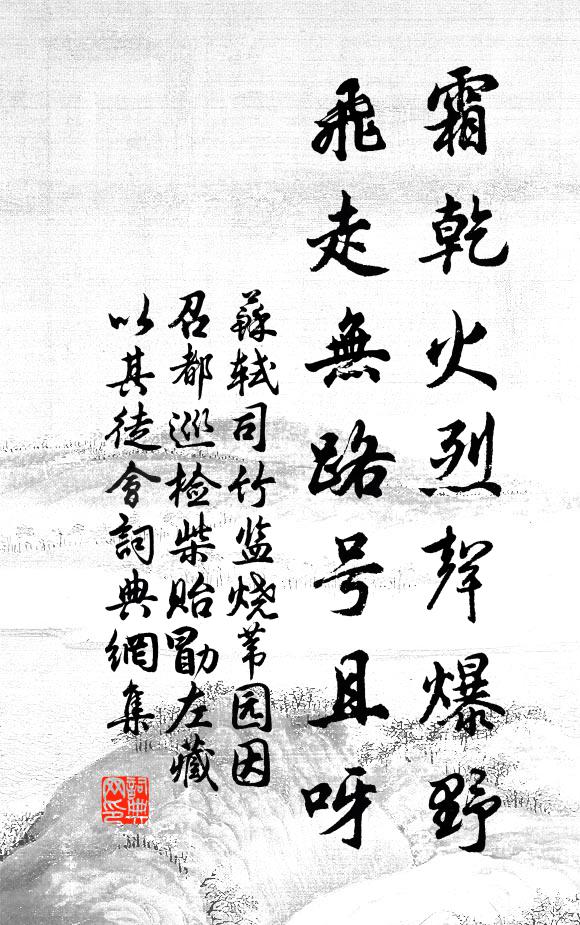 霜乾火烈聲爆野
飛走無路号且呀
蘇軾司竹监烧苇园因
召都巡检柴贻勖左藏
以其徒會詞典網集
詞典
网印